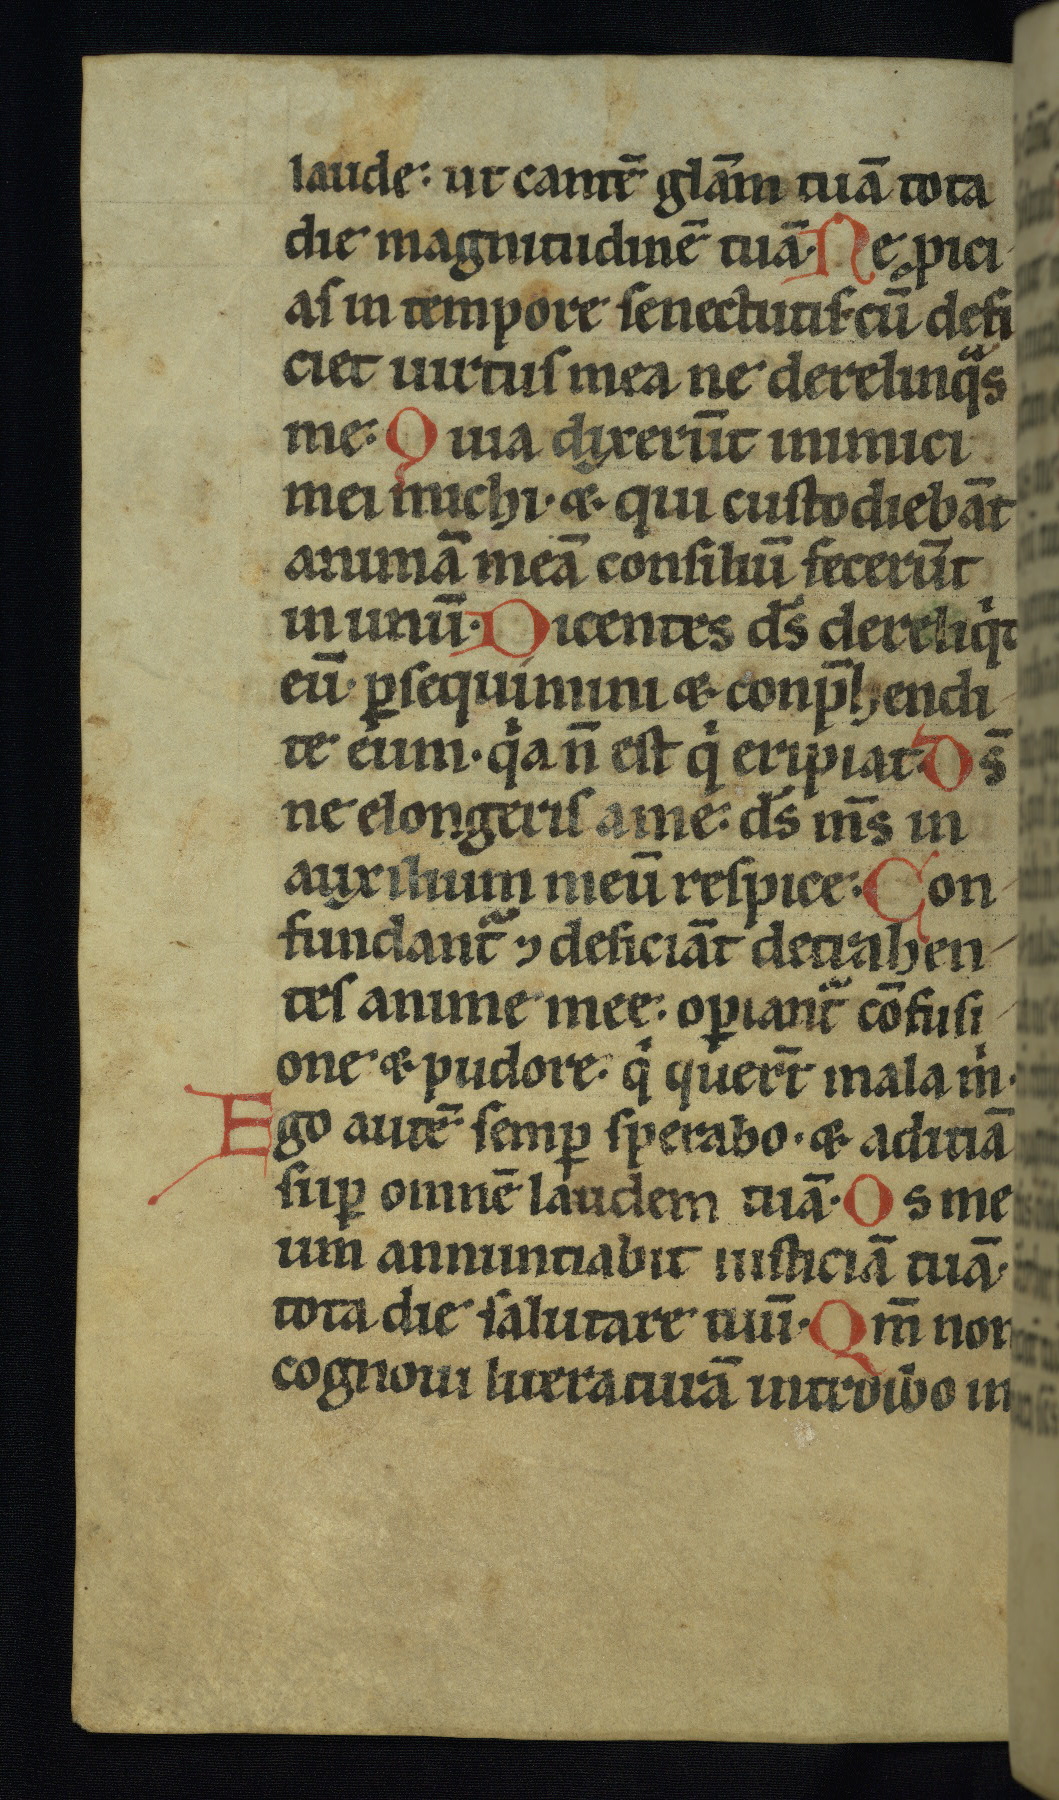 laude: ut cantē glām tuā tota
die magnitudinē tuā. Ne ꝓici
as in tempore senectutis. cū defi
ciet uirtus mea ne derelinqᵃs
me: Quia dixerūt inimici
mei michi. & qui custodiebāt
animā meā consiliū fecerūt
in unū. Dicentes ds̄ dereliqͥt
eū. ꝑsequimini & conp̄hendi
te eum. qͥa n̄ est qͥ eripiat. Ds̄
ne elongeris a me: ds̄ ms̄ in
auxilium meū respice: Con
fundantᷓ ⁊ deficiāt detrahen
tes anime mee: oꝑiantᷓ cōfusi
one & pudore. qͥ quert̄ mala mͥ.
Ego autē semꝑ sperabo. & aditiā
suꝑ omnē laudem tuā. Os me
um annuntiabit iusticiā tuā.
tota die salutare tuū. Qm̄ non
cognoui literaturā introibo in